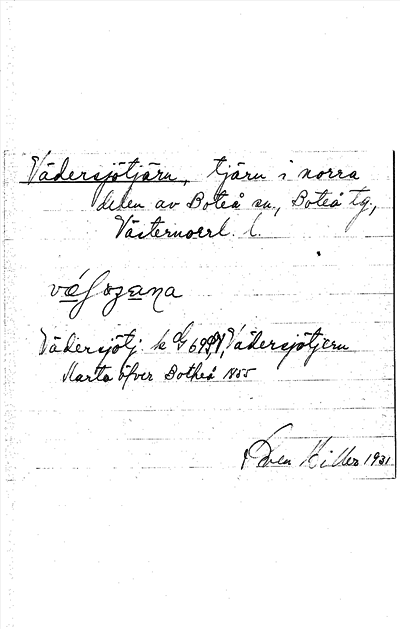 Vädersjötjärn, tjärn i norra
delen av Boteå sn., Boteå tg.,
Västernorrl. l.
Vädersjötj k G 69 Vädersjötjern
Karta öfver Botheå 1855
Sven Hiller 1931